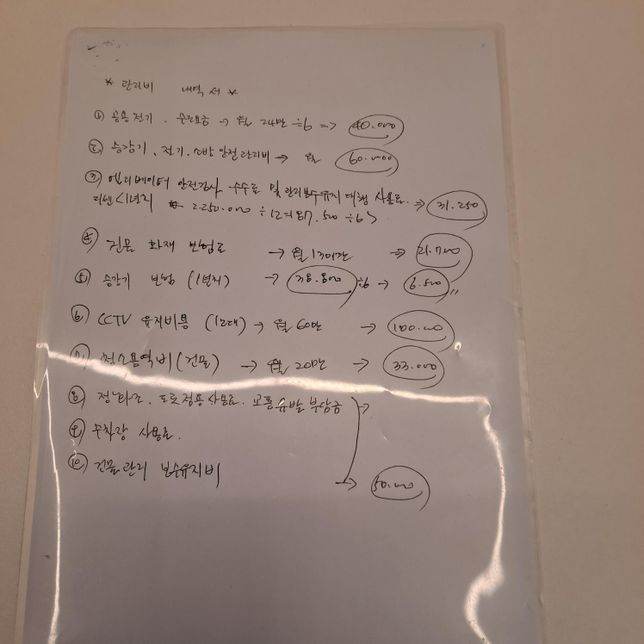 * 관리비 내역서 *
① 공용전기 . 수도요금 → 월 24만 ÷6 => 40.000
② 승강기 . 전기 . 소방 안전관리비 → 월 60.000
③ 엘리베이터 안전검사 수수료 및 관리보수유지 대행 사용료 . => 31.250
티센 <1년치 2.250.000 ÷12 = 187.500 ÷6>
④ 건물 화재 보험료 → 월 13여만 => 21.700
⑤ 승강기 보험 (1년치) → 38.800 ÷6 → 6.500
⑥ CCTV 유지비용 (12대) → 월 60만 → 100.000
⑦ 청소용역비 (건물) → 월 20만 → 33.000
⑧ 정화조 . 도로점용사용료 . 교통유발부담금 →
⑨ 주차장 사용료 .
⑩ 건물관리 보수유지비 → 50.000